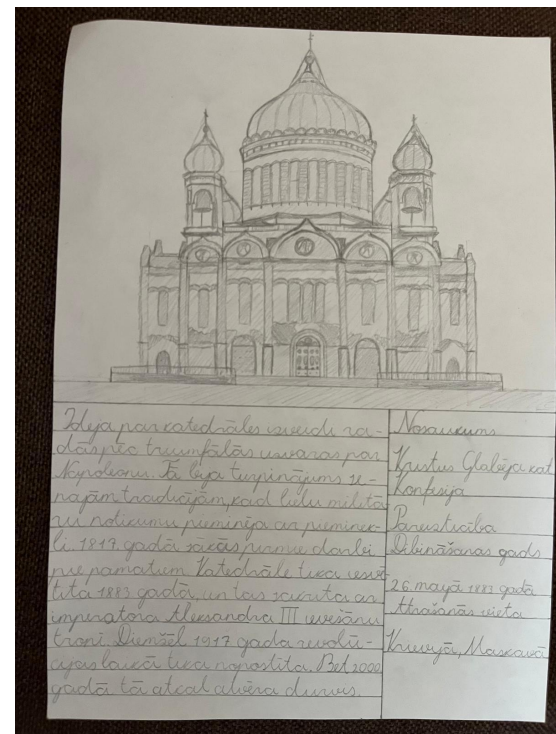 Ideja par katedrāles izveidi ra-
dās pēc triumfālās uzvaras par
Napoleonu. Tā bija turpinājums se-
najām tradīcijām, kad lielu militā-
ru notikumu pieminēja ar piemineк-
li. 1817. gadā sākās pirmie darbi
pie pamatiem. Katedrāle tika iesvē-
tīta 1883 gadā, un tas sakrita ar
imperatora Aleksandra III iecelšanu
tronī. Diemžēl 1917 gada revolū-
cijas laikā tika nopostīta. Bet 2000
gadā tā atkal atvēra durvis.
Nosaukums
Kristus Glābēja kat.
Konfesija
Pareizticība
Dibināšanas gads
26. maijā 1883 gadā
Atrašanās vieta
Krievijā, Maskavā